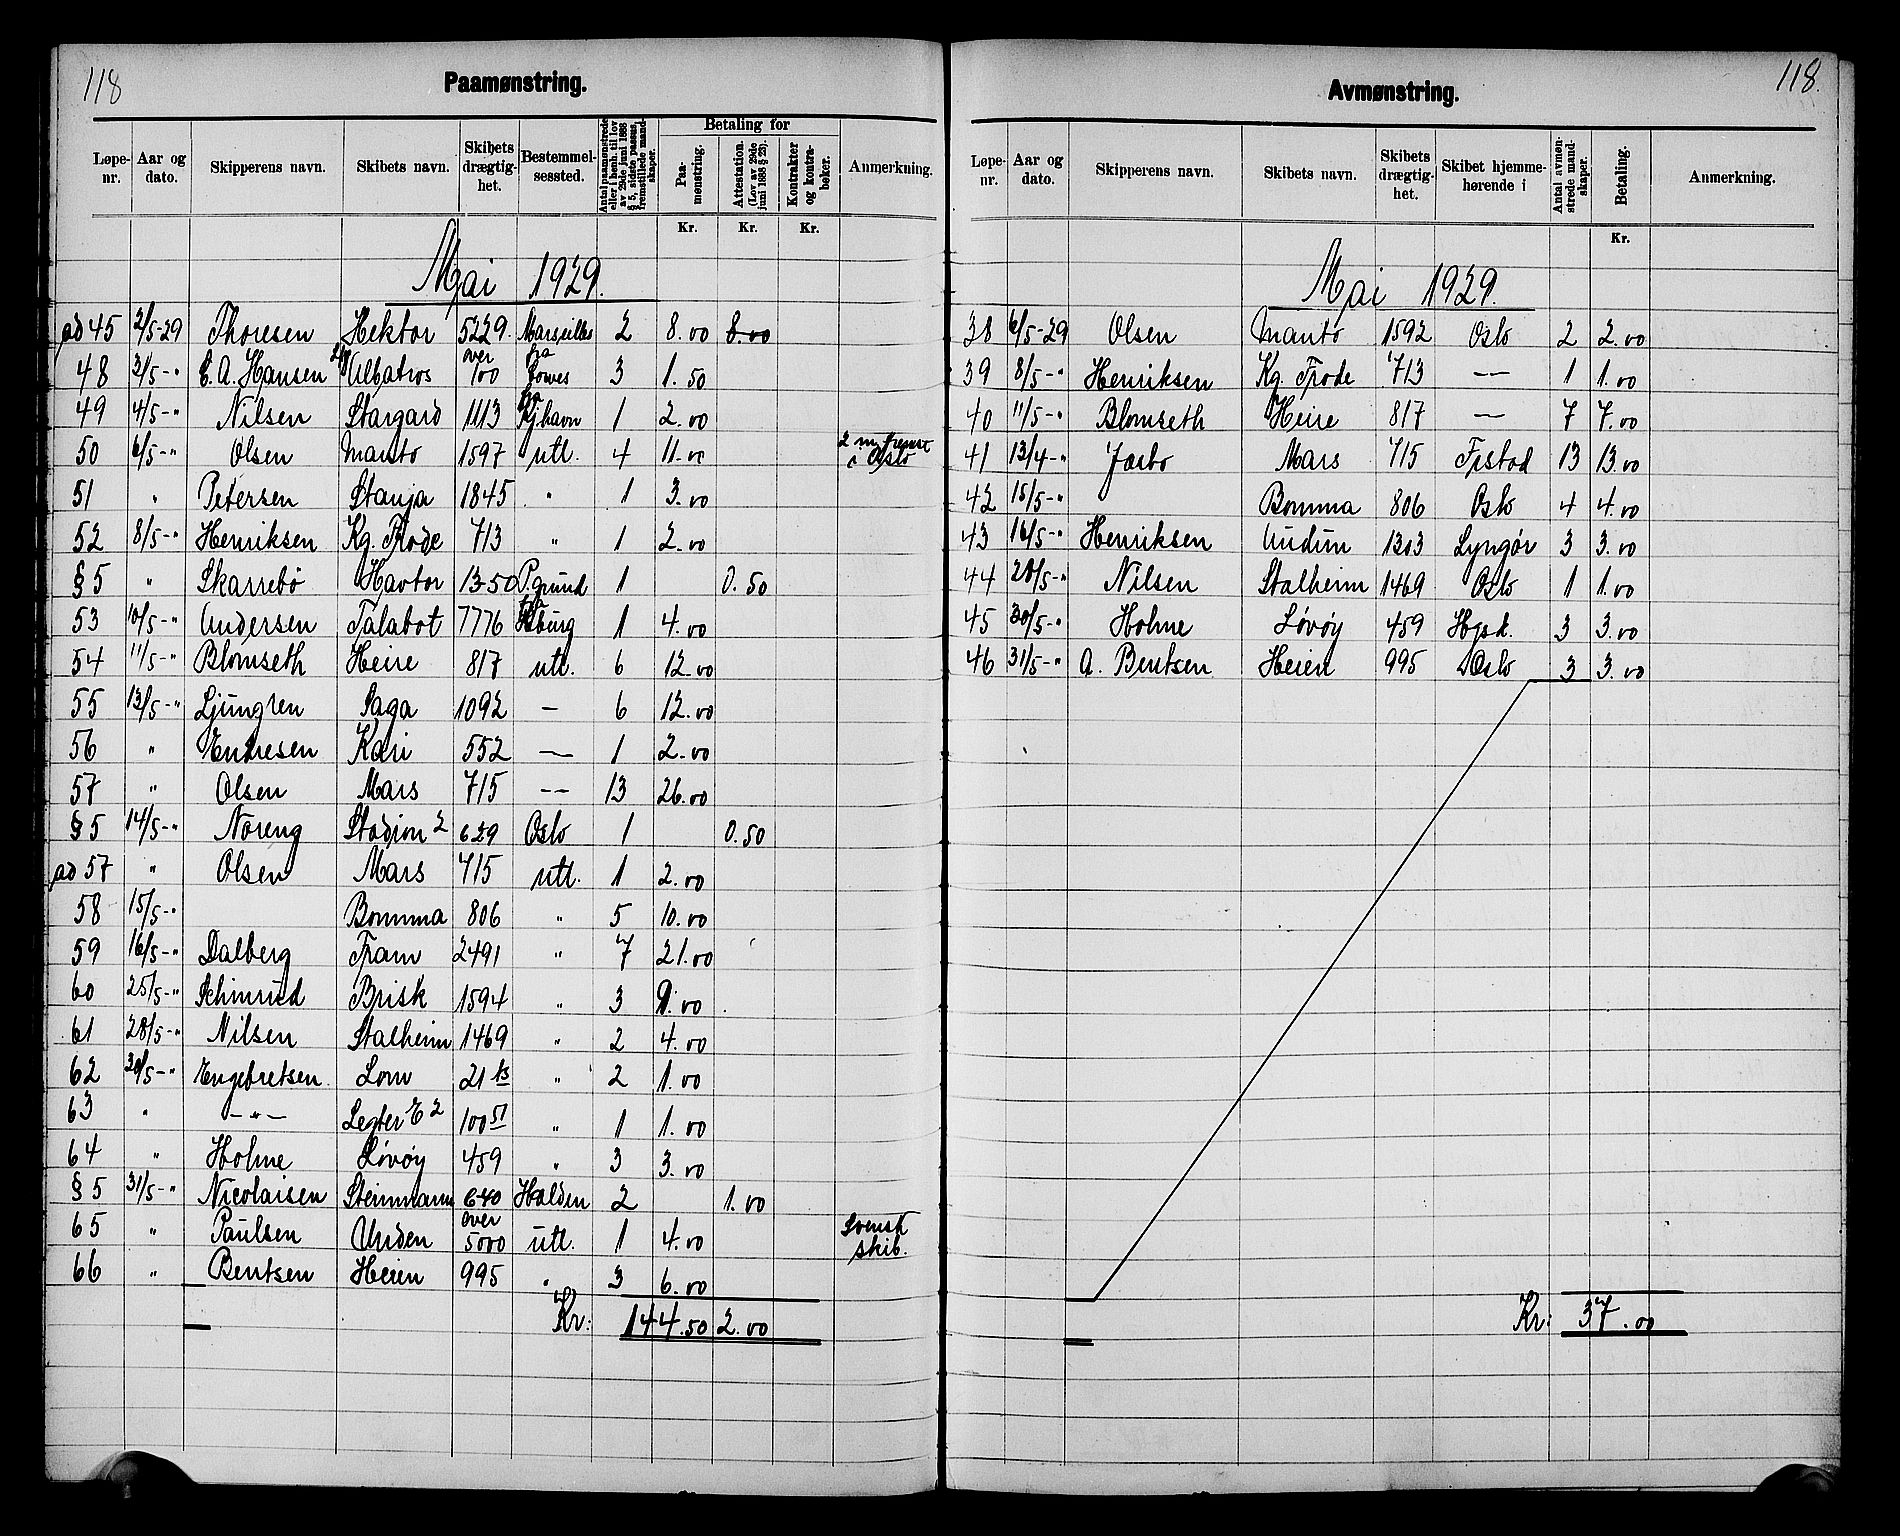 118
Paamønstring.
Løpe-nr. Aar og dato. Skipperens navn. Skibets navn. Skibets drægtig-het. Bestemmel-sessted. Antal paamønstrede eller i henh. til lov av 29de juni 1888 § 5, sidste passus, fremstillede mand-skaper. Betaling for Paa-mønstring. Attestation. (Lov av 29de juni 1888 § 23). Kontrakter og kontra-bøker. Anmerkning.
Kr. Kr. Kr.
Mai 1929.
ad 45 2/5-29 Thoresen Hektor 5229. Marseilles 2 8.00 8.00
48 3/5-" C. A. Hansen Albatros over 100 fra Cowes 3 1.50
49 4/5-" Nilsen Stargard 1113 fra Kjhavn 1 2.00
50 6/5-" Olsen Manto 1597 utl. 4 11.00 2 m i Oslo
51 " Petersen Stanja 1845 " 1 3.00
52 8/5-" Henriksen Kg. Frode 713 " 1 2.00
§ 5 " Skarrebø Havtor 1350 P.grund 1 0.50
53 10/5-" Andersen Talabot 7776 fra Hburg 1 4.00
54 11/5-" Blomseth Heire 817 utl. 6 12.00
55 13/5-" Ljungren Saga 1092 — 6 12.00
56 " Endresen Kari 552 — 1 2.00
57 " Olsen Mars 715 -- 13 26.00
§ 5 14/5-" Noreng Stadion 2 629 Oslo 1 0.50
ad 57 " Olsen Mars 715 utl. 1 2.00
58 15/5-" Bomma 806 " 5 10.00
59 16/5-" Dalberg Fram 2491 " 7 21.00
60 25/5-" Schinrud Brisk 1594 " 3 9.00
61 28/5-" Nilsen Stalheim 1469 " 2 4.00
62 30/5-" Engebretsen Lom 21 " 2 1.00
63 " -"- Legter E 2 100 51 " 1 1.00
64 " Holme Løvøy 459 " 3 3.00
§ 5 31/5-" Nicolaisen Steinmann 640 Halden 2 1.00
65 " Paulsen Unden over 5000 utl. 1 4.00 Svensk skib.
66 " Bentsen Heien 995 " 3 6.00
Kr: 144.50 2.00
118.
Avmønstring.
Løpe-nr. Aar og dato. Skipperens navn. Skibets navn. Skibets drægtig-het. Skibet hjemme-hørende i Antal avmøn-strede mand-skaper. Betaling. Anmerkning.
Kr.
Mai 1929.
38 6/5-29 Olsen Manto 1592 Oslo 2 2.00
39 8/5-" Henriksen Kg. Frode 713 -- 1 1.00
40 11/5-" Blomseth Heire 817 — 7 7.00
41 13/4-" Jasbo Mars 715 Frstad 13 13.00
42 15/5-" Bomma 806 Oslo 4 4.00
43 16/5-" Henriksen Audun 1303 Lyngør 3 3.00
44 28/5-" Nilsen Stalheim 1469 Oslo 1 1.00
45 30/5-" Holme Løvøy 459 3 3.00
46 31/5-" A. Bentsen Heien 995 Oslo 3 3.00
Kr: 37.00